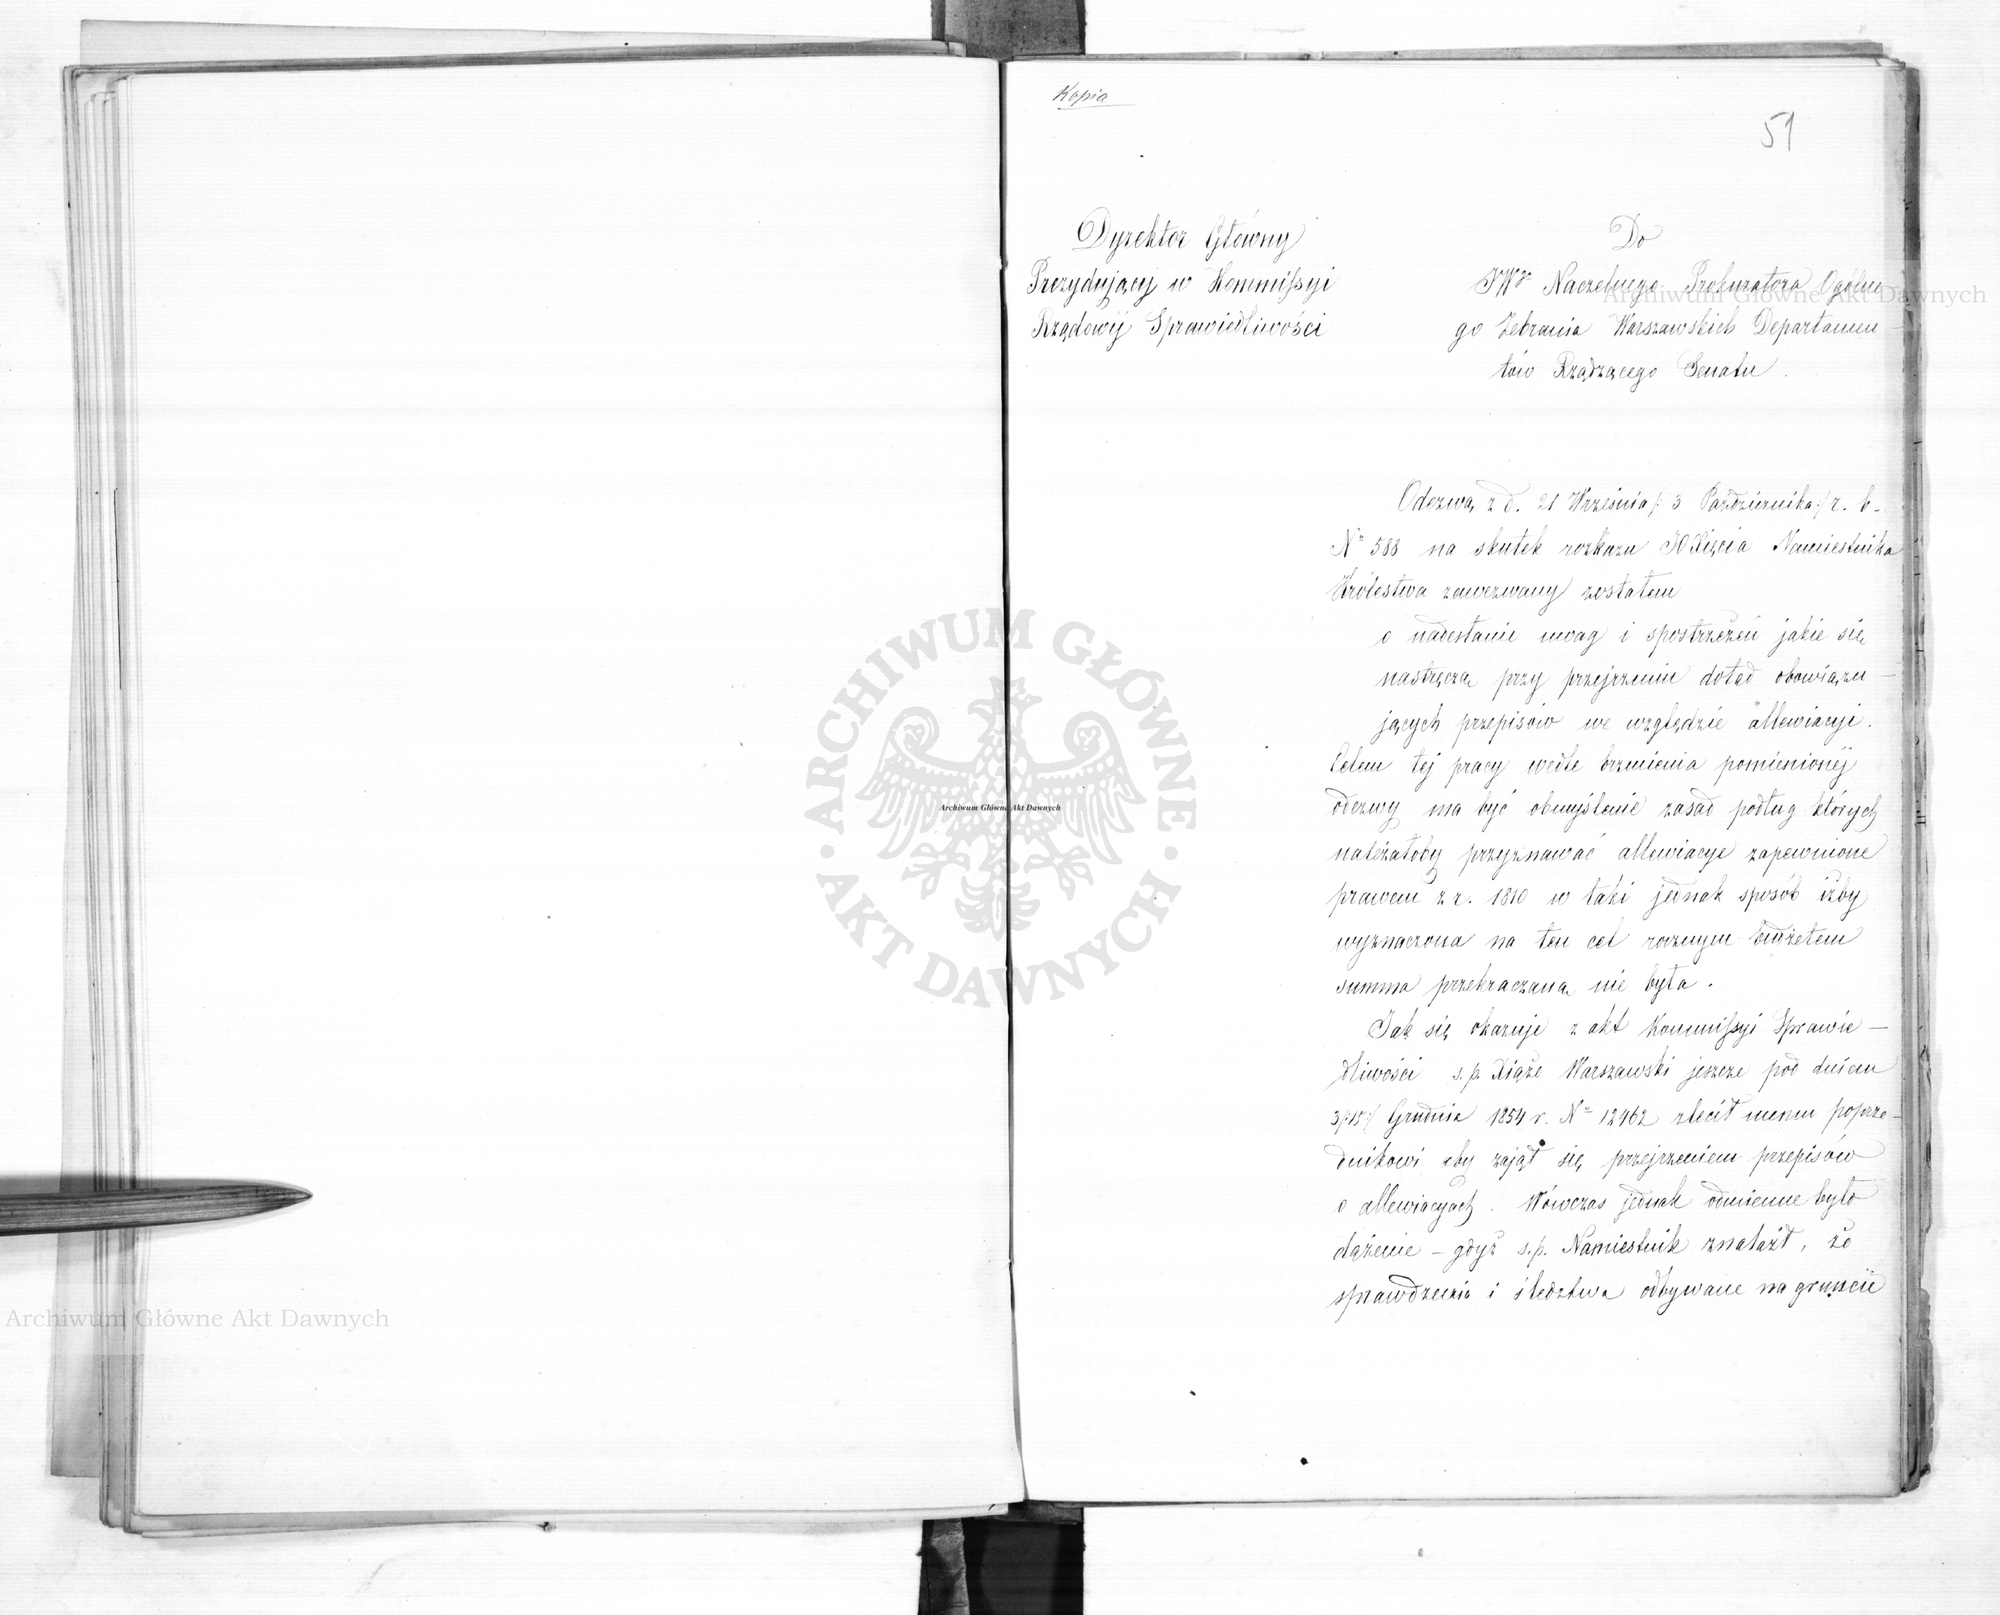 Kopia
51
Dyrektor Główny
Prezydujący w Kommissyi
Rządowéj Sprawiedliwości
Do
JWgo Naczelnego Prokuratora Ogólne
go Zebrania Warszawskich Departamen-
tów Rządzącego Senatu.
Odezwą z d. 21 Września /: 3 Października :/ r. b.
No 588 na skutek rozkazu JOXięcia Namiestnika
Królestwa zawezwany zostałem
o nadesłanie uwag i spostrzeżeń jakie się
nastręczą przy przejrzeniu dotąd obowiązu-
jących przepisów we względzie allewiacyi.
Celem téj pracy wedle brzmienia pomienionéj
odezwy ma być obmyślenie zasad podług których
należałoby przyznawać allewiacye zapewnione
prawem z r. 1810 w taki jednak sposób iżby
wyznaczona na ten cel rocznym budżetem
summa przekraczaną nie była.
Jak się okazuje z akt Kommissyi Sprawie-
dliwości ś. p. Xiąże Warszawski jeszcze pod dniem
3/:15:/ Grudnia 1854 r. No 12462 zlecił memu poprze-
dnikowi aby zajął się przejrzeniem przepisów
o allewiacyach. Wówczas jednak odmienne było
dążenie – gdyż ś. p. Namiestnik znalazł, że
sprawdzenia i śledztwa odbywane na gruncie
Archiwum Główne Akt Dawnych
ARCHIWUM GŁÓWNE AKT DAWNYCH
Archiwum Główne Akt Dawnych
Archiwum Główne Akt Dawnych